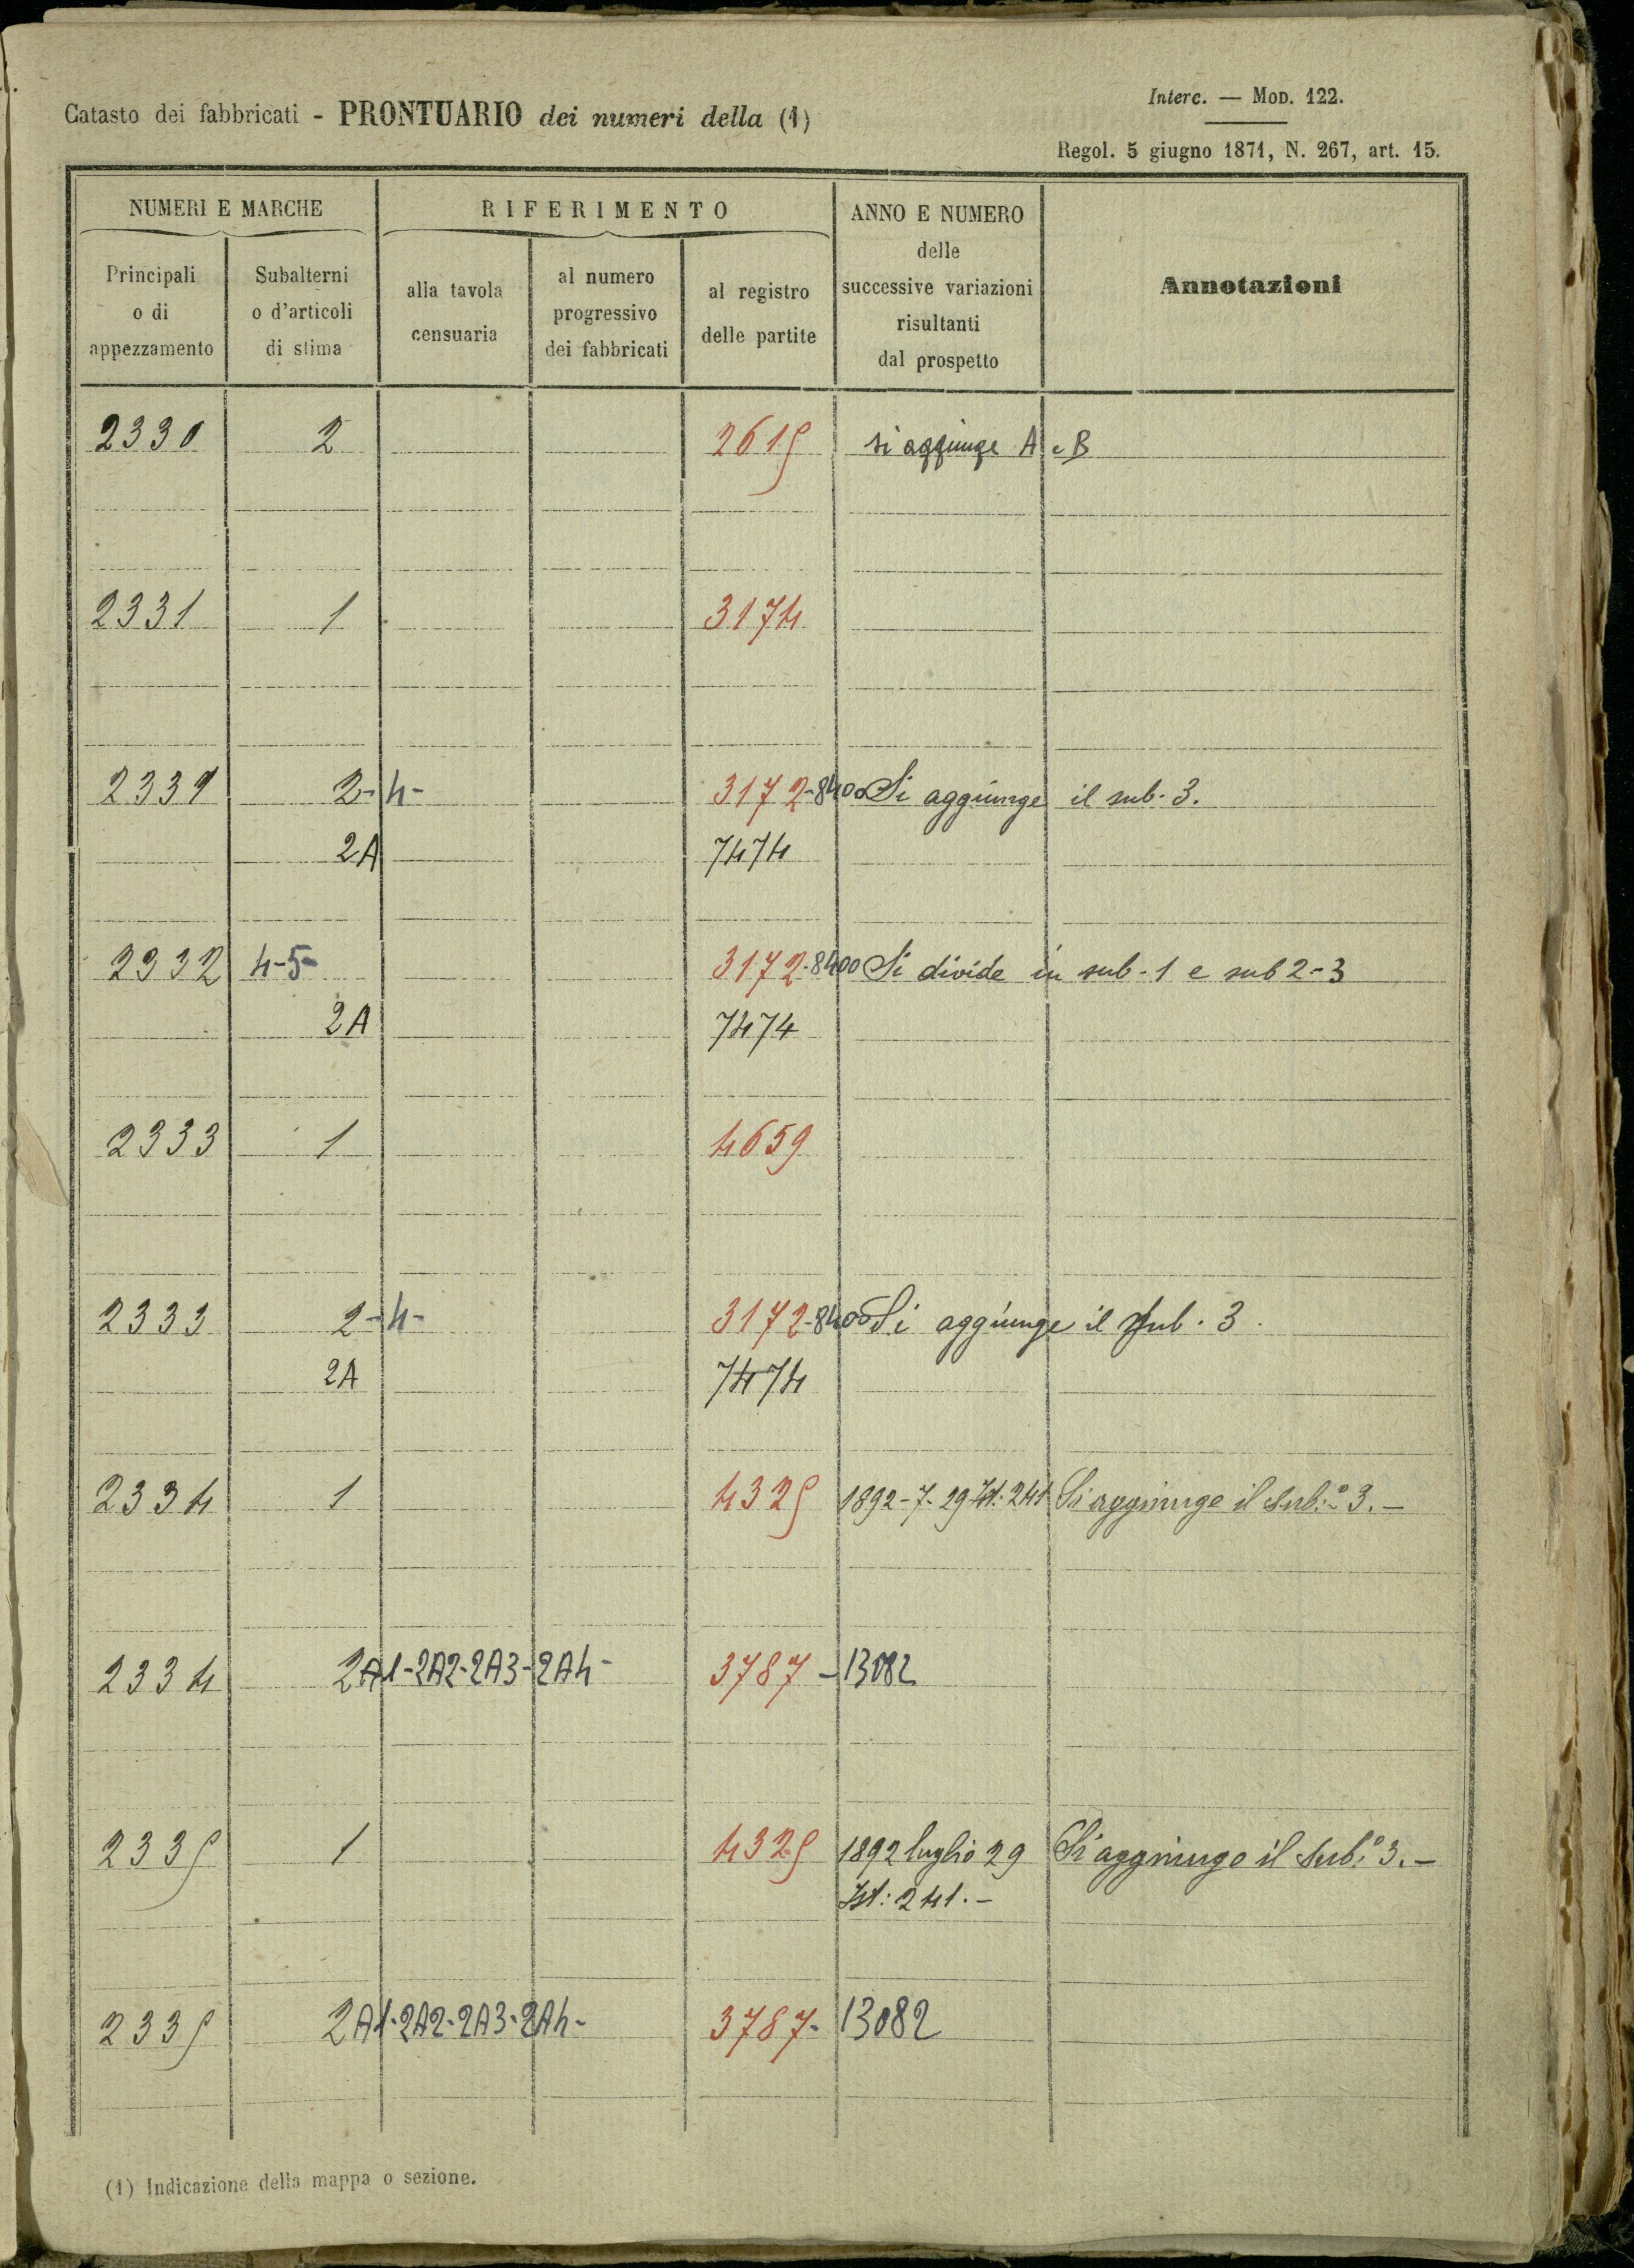 Interc. — MOD. 122.
Catasto dei fabbricati - PRONTUARIO dei numeri della (1)
Regol. 5 giugno 1871, N. 267, art. 15.
NUMERI E MARCHE
RIFERIMENTO
ANNO E NUMERO
delle
successive variazioni
risultanti
dal prospetto
Annotazioni
Principali
o di
appezzamento
Subalterni
o d'articoli
di stima
alla tavola
censuaria
al numero
progressivo
dei fabbricati
al registro
delle partite
2330 2 2615 si aggiunge A e B
2331 1 3174
2331 2-4- 3172-8400 Si aggiunge il sub. 3.
2A 7474
2332 4-5- 3172-8400 Si divide in sub-1 e sub 2-3
2A 7474
2333 1 4659
2333 2-4- 3172-8400 Si aggiunge il sub. 3.
2A 7474
2334 1 4325 1892-7-29 Ist: 241 Si aggiunge il sub:º 3.-
2334 2A1-2A2-2A3-2A4- 3787-13082
2335 1 4325 1892 luglio 29 Si aggiunge il sub:º 3.-
Ist: 241.-
2335 2A1-2A2-2A3-2A4- 3787-13082
(1) Indicazione della mappa o sezione.